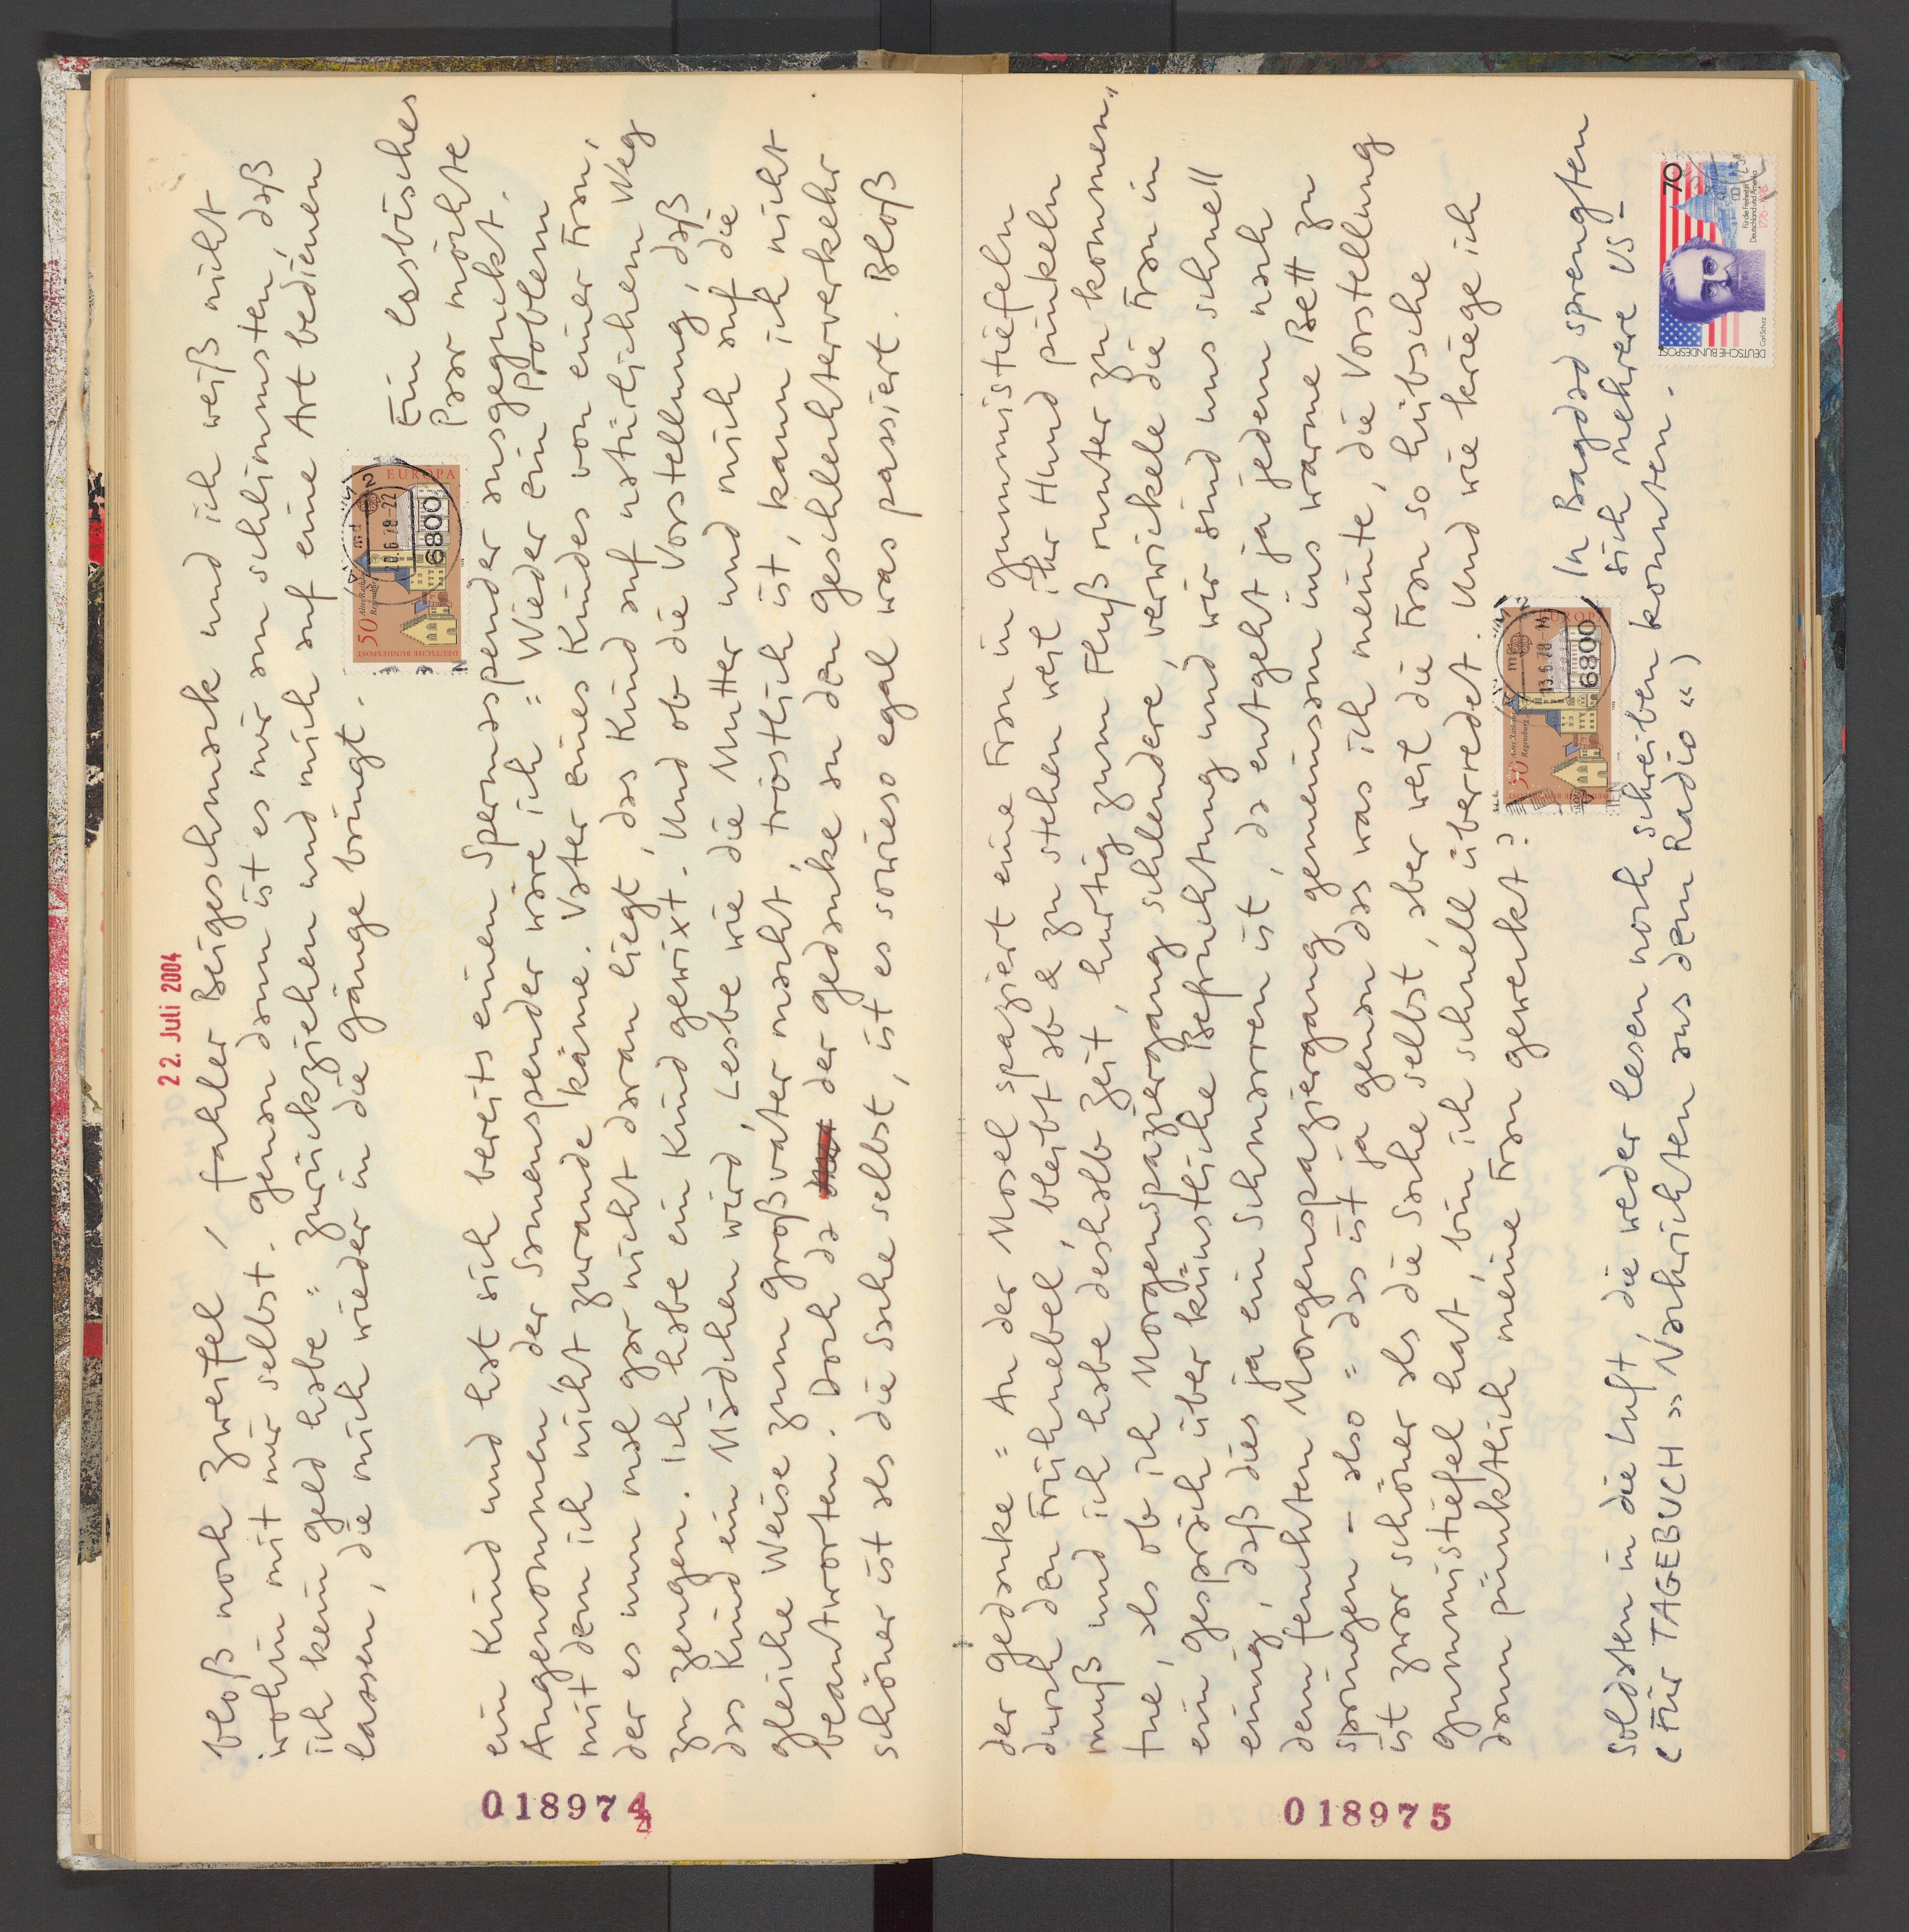 22. Juli 2004
bloß noch Zweifel, fahler Beigeschmack und ich weiß nicht
wohin mit mir selbst. Genau dann ist es mir am schlimmsten, daß
ich kein Geld habe = zurückziehen und mich auf eine Art bedienen
lassen, die mich wieder in die Gänge bringt.
DEUTSCHE BUNDESPOST
50
Altes Rathaus
Regensburg
EUROPA
6800
Ein lesbisches
Paar möchte
ein Kind und hat sich bereits einen Spermaspender ausgeguckt.
Angenommen der Samenspender wäre ich = Wieder ein Problem
mit dem ich nicht zurande käme. Vater eines Kindes von einer Frau,
der es nun mal gar nicht daran liegt, das Kind auf natürlichem Weg
zu zeugen. Ich habe ein Kind gewixt. Und ob die Vorstellung, daß
das Kind ein Mädchen wird, Lesbe wie die Mutter und mich auf die
gleiche Weise zum Großvater macht, tröstlich ist, kann ich nicht
beantworten. Doch da der Gedanke an den Geschlechterverkehr
schöner ist als die Sache selbst, ist es sowieso egal was passiert. Bloß
018974
der Gedanke = An der Mosel spaziert eine Frau in Gummistiefeln
durch den Frühnebel, bleibt ab & zu stehen weil ihr Hund pinkeln
muß und ich habe deshalb Zeit, hurtig zum Fluß runter zu kommen,
tue, als ob ich Morgenspaziergang schlendere, verwickele die Frau in
ein Gespräch über künstliche Befruchtung und wir sind uns schnell
einig, daß dies ja ein Schmarren ist, da entgeht ja jedem nach
dem feuchten Morgenspaziergang gemeinsam ins warme Bett zu
springen – also = das ist ja genau das was ich meinte, die Vorstellung
ist zwar schöner als die Sache selbst, aber weil die Frau so hübsche
Gummistiefel hat, bin ich schnell überredet. Und wie kriege ich
dann pünktlich meine Frau geweckt?
EUROPA
6800
In Bagdad sprengten
sich mehrere US-
Soldaten in die Luft, die weder lesen noch schreiben konnten.
(Für TAGEBUCH »Nachrichten aus dem Radio«)
DEUTSCHE BUNDESPOST
70
Carl Schurz
Für die Freiheit in
Deutschland und Amerika
1776-1976
018975